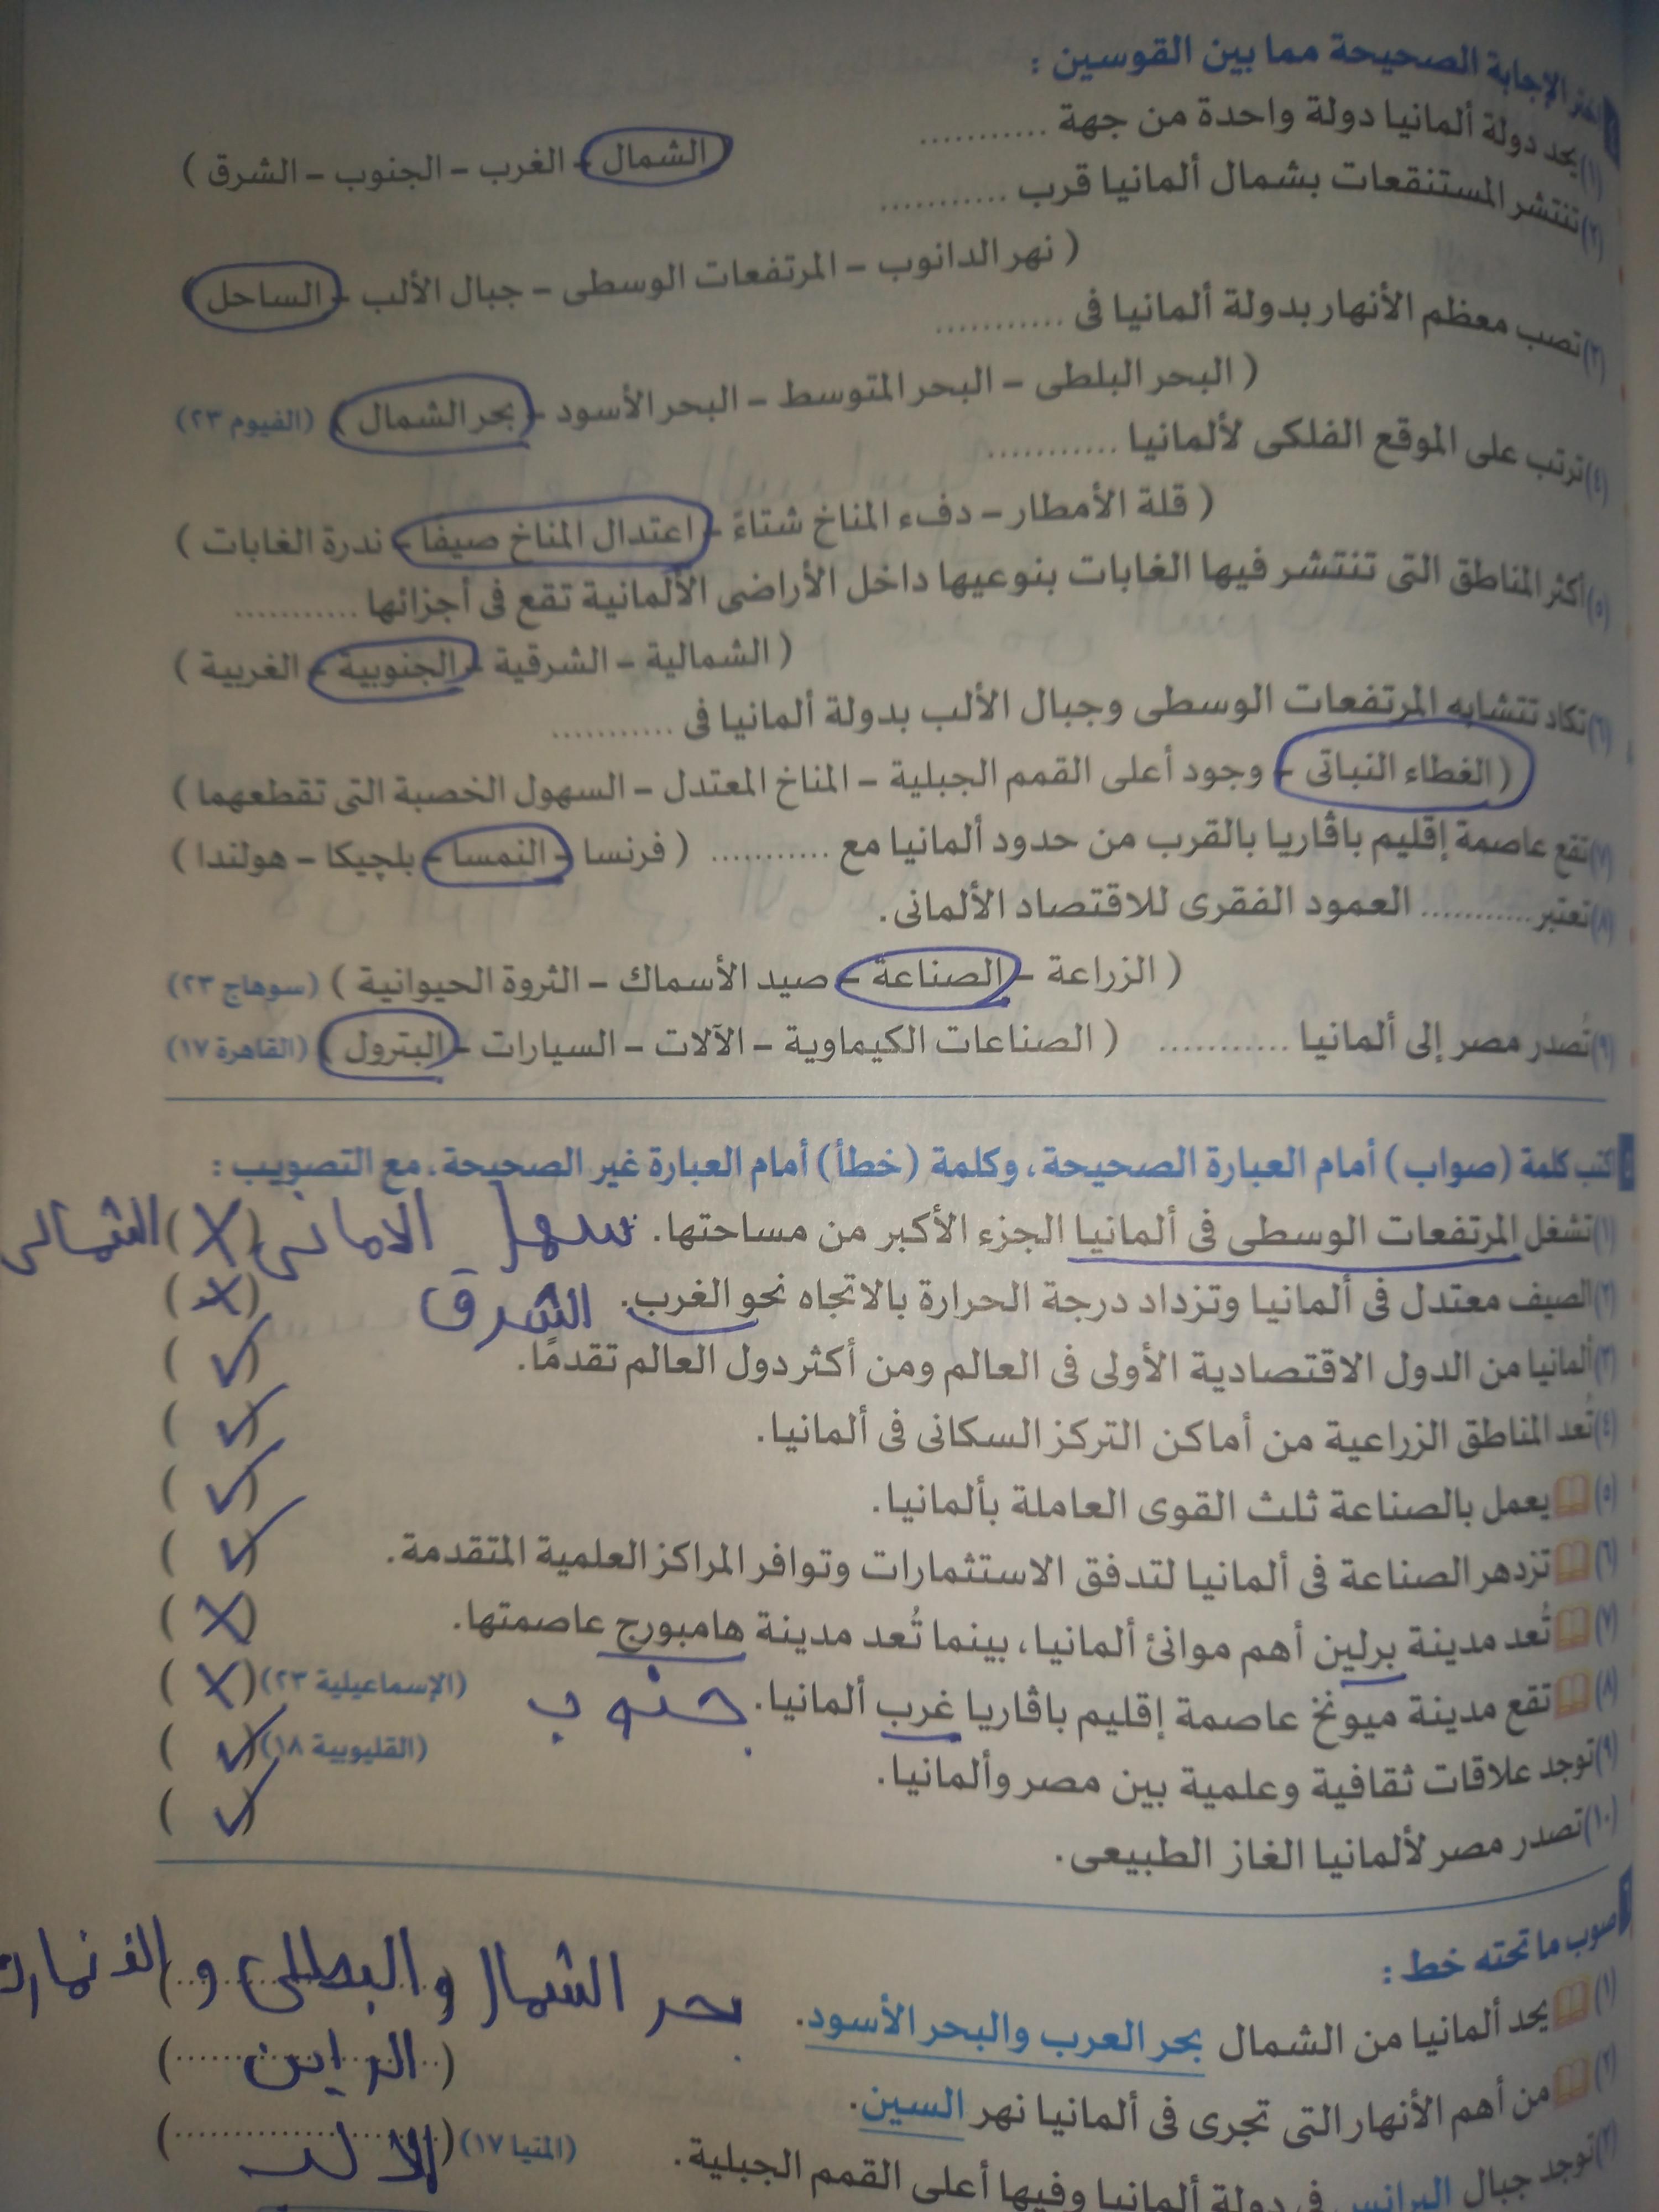 اختر الإجابة الصحيحة مما بين القوسين :
(١) يحد دولة ألمانيا دولة واحدة من جهة ...........
الشمال - الغرب - الجنوب - الشرق )
(٢) تنتشر المستنقعات بشمال ألمانيا قرب ...........
( نهر الدانوب - المرتفعات الوسطى - جبال الألب - الساحل
(٣) تصب معظم الأنهار بدولة ألمانيا فى ...........
( البحر البلطى - البحر المتوسط - البحر الأسود - بحر الشمال ) (الفيوم ٢٣)
(٤) ترتب على الموقع الفلكى لألمانيا ...........
( قلة الأمطار - دفء المناخ شتاءً - اعتدال المناخ صيفا - ندرة الغابات )
(٥) أكثر المناطق التى تنتشر فيها الغابات بنوعيها داخل الأراضى الألمانية تقع فى أجزائها ...........
( الشمالية - الشرقية - الجنوبية - الغربية )
(٦) تكاد تتشابه المرتفعات الوسطى وجبال الألب بدولة ألمانيا فى ...........
( الغطاء النباتى - وجود أعلى القمم الجبلية - المناخ المعتدل - السهول الخصبة التى تقطعهما )
(٧) تقع عاصمة إقليم باڤاريا بالقرب من حدود ألمانيا مع ........... ( فرنسا - النمسا - بلچيكا - هولندا )
(٨) تعتبر ........... العمود الفقرى للاقتصاد الألمانى.
( الزراعة - الصناعة - صيد الأسماك - الثروة الحيوانية ) (سوهاج ٢٣)
(٩) تُصدر مصر إلى ألمانيا ........... ( الصناعات الكيماوية - الآلات - السيارات - البترول ) (القاهرة ١٧)
اكتب كلمة (صواب) أمام العبارة الصحيحة، وكلمة (خطأ) أمام العبارة غير الصحيحة، مع التصويب :
(١) تشغل المرتفعات الوسطى فى ألمانيا الجزء الأكبر من مساحتها. سهل الامانى (X) الشمالى
(٢) الصيف معتدل فى ألمانيا وتزداد درجة الحرارة بالاتجاه نحو الغرب. الشرق (X)
(٣) ألمانيا من الدول الاقتصادية الأولى فى العالم ومن أكثر دول العالم تقدمًا. (✓)
(٤) تُعد المناطق الزراعية من أماكن التركز السكانى فى ألمانيا. (✓)
(٥) يعمل بالصناعة ثلث القوى العاملة بألمانيا. (✓)
(٦) تزدهر الصناعة فى ألمانيا لتدفق الاستثمارات وتوافر المراكز العلمية المتقدمة. (✓)
(٧) تُعد مدينة برلين أهم موانئ ألمانيا، بينما تُعد مدينة هامبورج عاصمتها. (X)
(٨) تقع مدينة ميونخ عاصمة إقليم باڤاريا غرب ألمانيا. جنوب (الإسماعيلية ٢٣) (X)
(٩) توجد علاقات ثقافية وعلمية بين مصر وألمانيا. (القليوبية ١٨) (✓)
(١٠) تصدر مصر لألمانيا الغاز الطبيعى. (✓)
صوب ما تحته خط :
(١) يحد ألمانيا من الشمال بحر العرب والبحر الأسود. بحر الشمال والبطلى و الدنمارك
(٢) من أهم الأنهار التى تجرى فى ألمانيا نهر السين. (الراين)
(٣) توجد جبال البرانس فى دولة ألمانيا وفيها أعلى القمم الجبلية. (المنيا ١٧) (الالب)